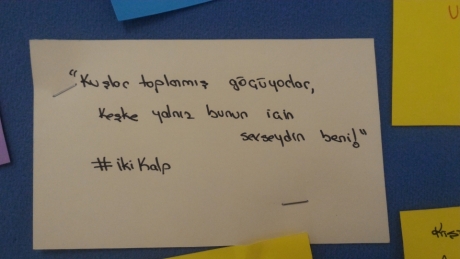 "Kuşlar toplanmış göçüyorlar,
Keşke yalnız bunun için
sevseydin beni!"
#ikiKalp
U